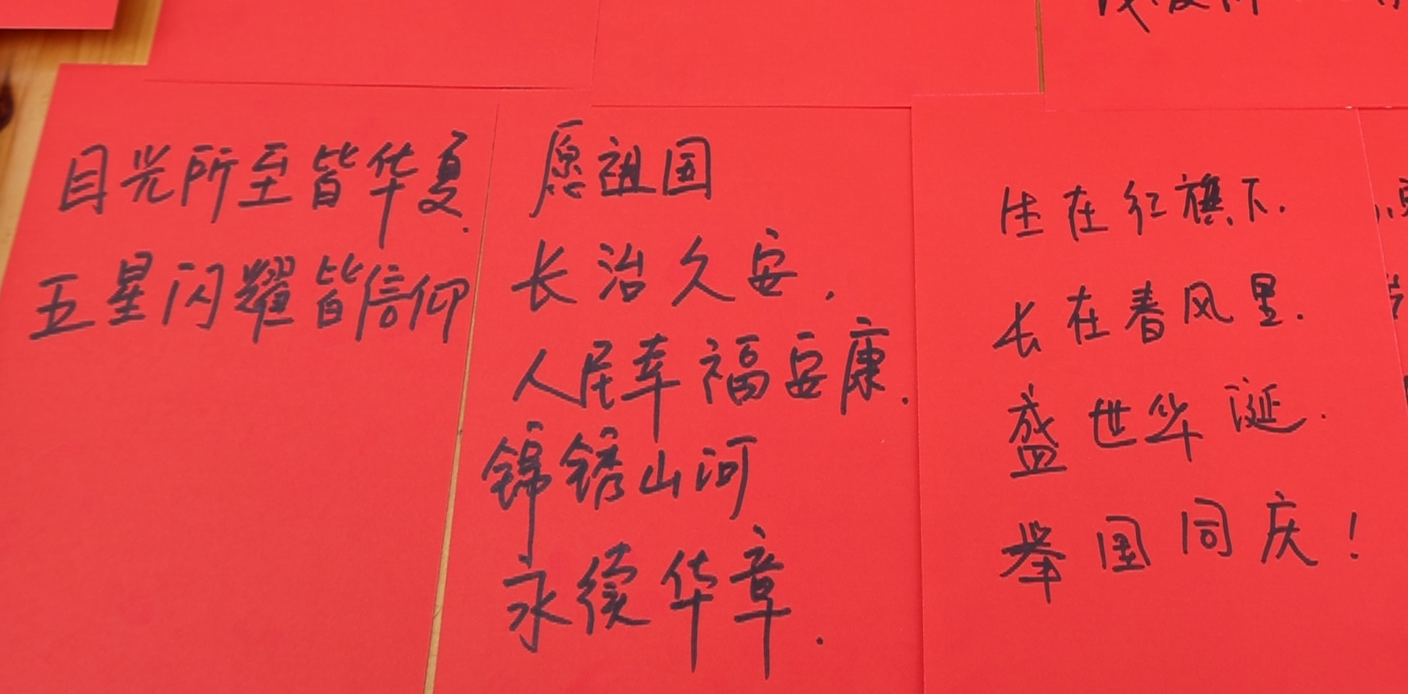 目光所至皆华夏.
五星闪耀皆信仰
愿祖国
长治久安,
人民幸福安康.
锦锈山河
永续华章.
生在红旗下.
长在春风里.
盛世华诞.
举国同庆!